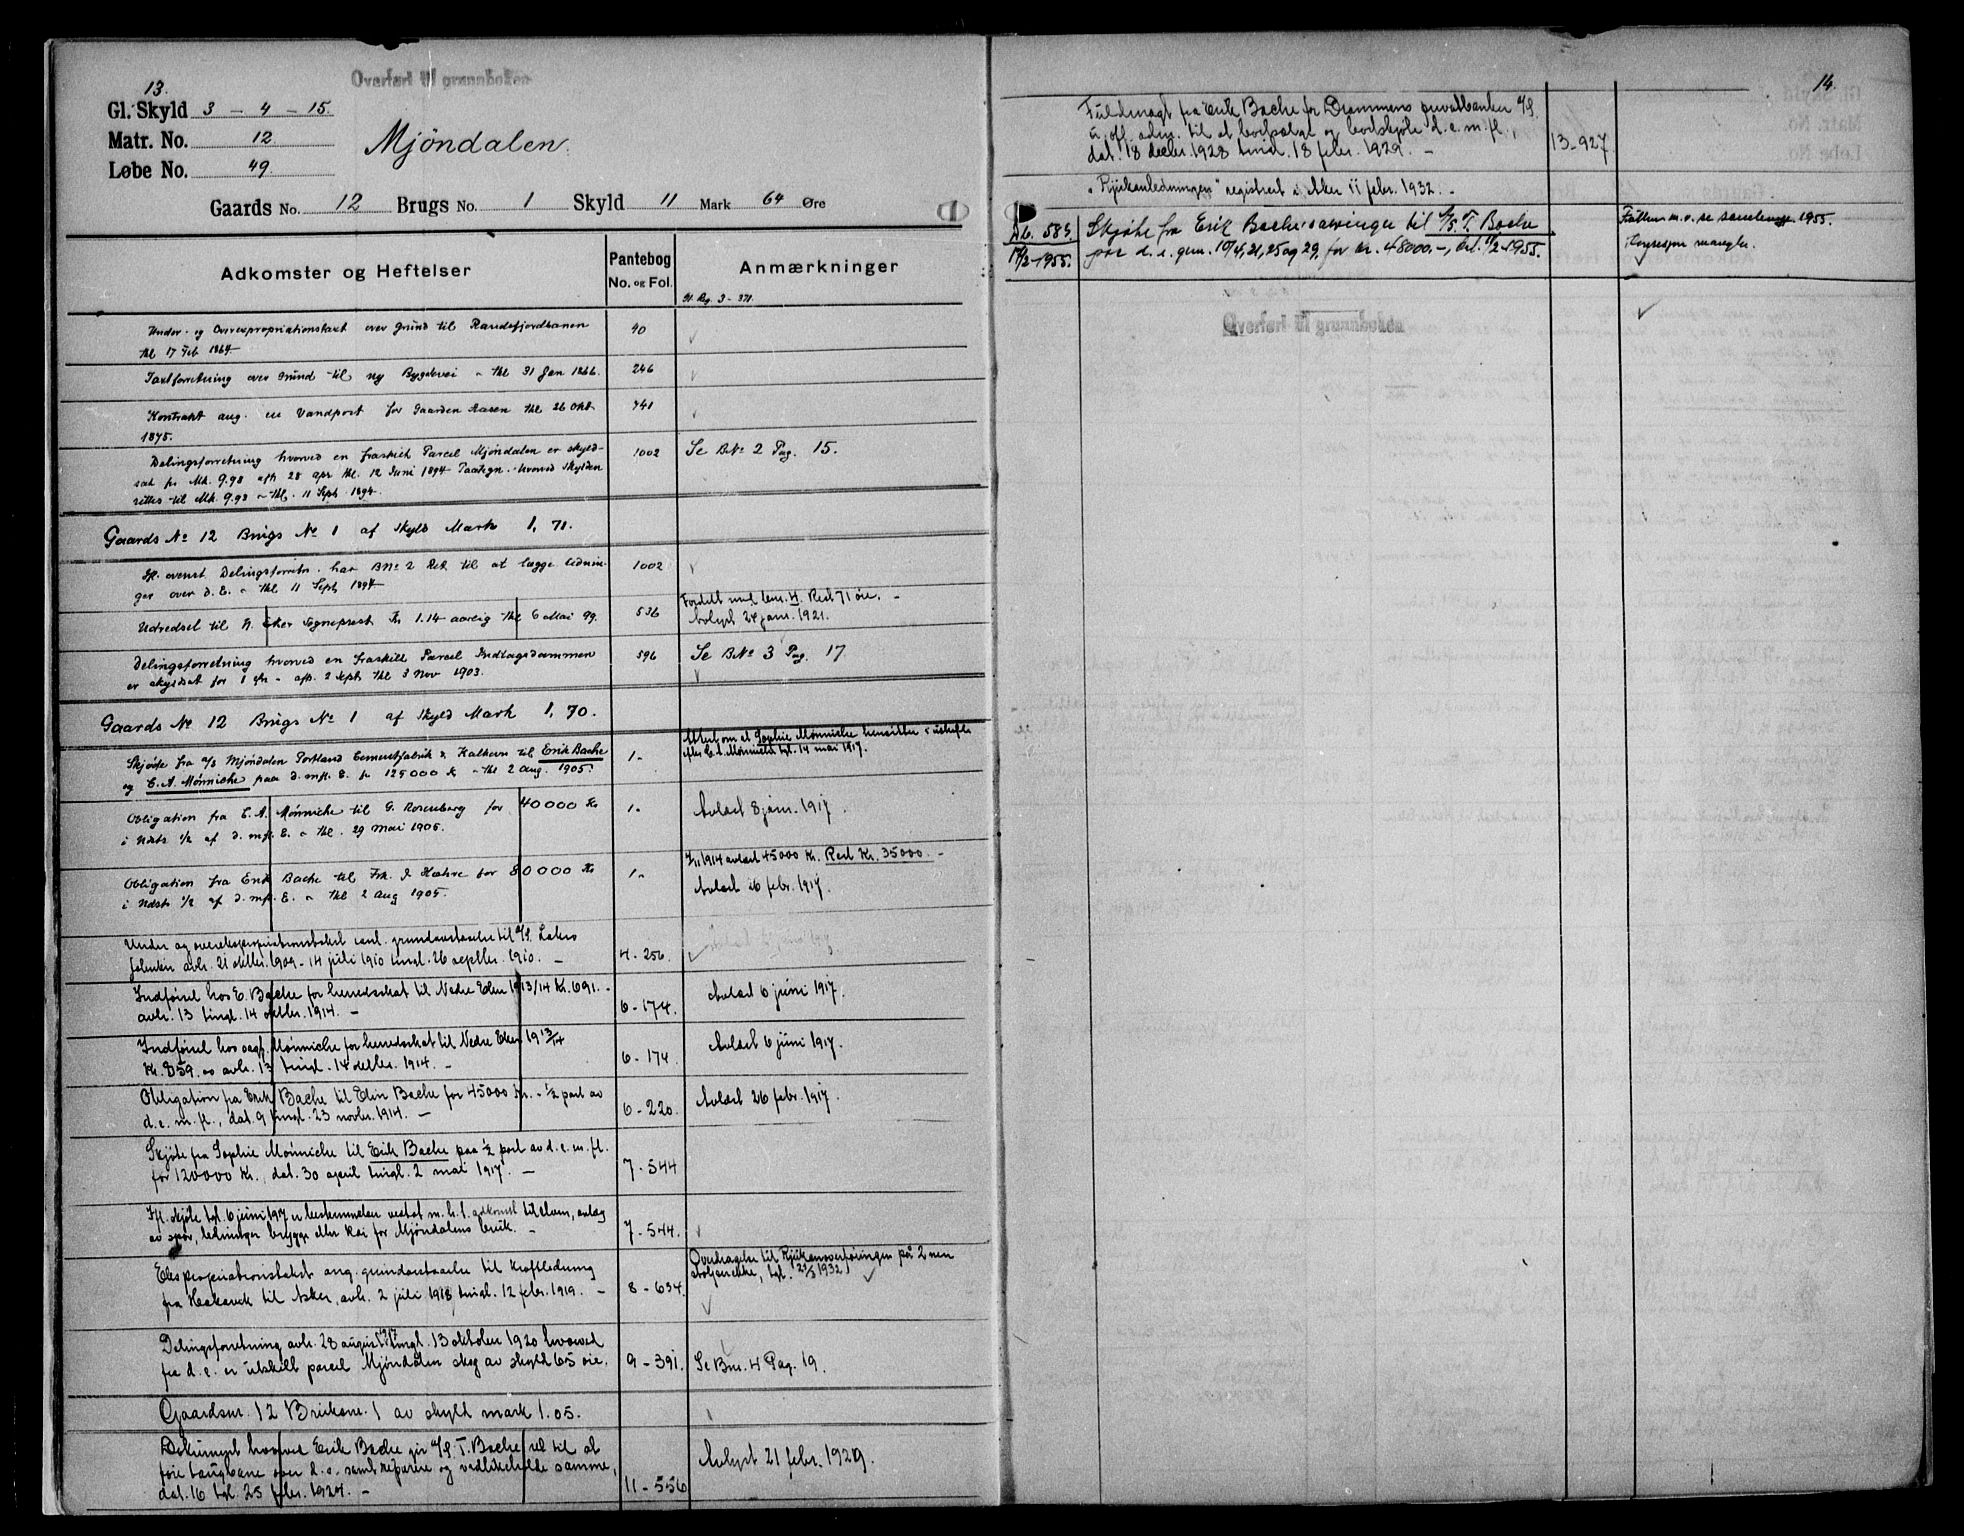 13.
Overført til grunnboken
Gl. Skyld 3 - 4 - 15.
Matr. No. 12
Løbe No. 49.
Mjöndalen.
Gaards No. 12 Brugs No. 1 Skyld 11 Mark 64 Øre
Adkomster og Heftelser
Pantebog
No. og Fol.
Anmærkninger
3 - 371.
Under- og Overexpropriationstaxt over Grund til Randsfjordbanen 40
thl 17 Feb 1864.
Taxtforretning over Grund til ny Bygdevei - thl 31 Jan 1866. 246
Kontrakt ang. en Vandpost for Gaarden Aasen thl 26 Okt 741
1875.
Delingsforretning hvorved en fraskilt Parcel Mjöndalen er skyld- 1002 Se BNo 2 Pag. 15.
sat for Mk. 9.98 afh 28 apr thl. 12 Juni 1894 Paategn. hvorved Skylden
rettes til Mk. 9.93 - thl. 11 Sept 1894.
Gaards No 12 Brugs No 1 af Skyld Mark 1,71.
If. ovenst Delingsforretn. har BNo 2 Ret til at lægge lednin- 1002
ger over d. E. - thl 11 Sept 1894
Udredsel til N. Eker Sogneprest Kr 1.14 aarlig thl 6 Mai 99. 536
Fordelt med bnr. 4. Rest 71 øre. -
Avlyst 24 jan. 1921.
Delingsforretning hvorved en fraskilt Parcel Indtagsdammen 596 Se BNo 3 Pag. 17
er skyldsat for 1 øre - afh. 2 Sept thl 3 Nov 1903.
Gaards No 12 Brugs No 1 af Skyld Mark 1,70.
Skjøte fra a/s Mjöndalen Portland Cementfabrik & Kalkovn til Erik Bache 1-
og C. A. Mønniche paa d. mfl. E. for 125000 Kr - thl 2 Aug. 1905.
Attest om at Sophie Mønniche hensitter i uskifte
efter C. A. Mønniche tgl. 14 mai 1917.
Obligation fra C. A. Mønniche til G. Rosenberg for 40000 Kr 1-
i Ndsts 1/2 af d. mfl. E. - thl. 29 Mai 1905.
Avlæst 8 jan. 1917.
Obligation fra Erik Bache til Frk. for 80000 Kr 1-
i Ndsts 1/2 af d. mfl. E. - thl 2 Aug 1905.
1914 avlæst 45000 Kr. Rest Kr. 35000. -
Avlæst 26 febr. 1917.
Under og overekspropriationstakst grundavstaaelse til A/S.
avh. 21 oktbr. 1909 - 14 juli 1910 tingl. 26 septbr. 1910. - 4 - 256.
Indførsel hos E. Bache for herredsskat til Nedre Eker 1913/14 Kr. 691. -
avh. 13 tingl. 14 oktbr. 1914. - 6 - 174. Avlæst 6 juni 1917.
Indførsel hos Mønniche for herredsskat til Nedre Eker 19 13/14
Kr. 859. avh. 13 tingl. 14 oktbr. 1914. - 6 - 174. Avlæst 6 juni 1917.
Obligation fra Erik Bache til Elin Bache for 45000 kr. - 1/2 part av
d. e. m. fl., dat. 9 tingl. 23 novbr. 1914. - 6 - 220. Avlæst 26 febr. 1917.
Skjøte fra Sophie Mønniche til Erik Bache paa 1/2 part av d. e. m. fl.
for 120000 Kr., dat. 30 april tingl. 2 mai 1917. - 7 - 544
If. skjøte tgl. 6 juni 1917 er bestemmelser vedtat m. h. t. adkomst til elven, anlæg
av spor, ledninger brygge eller kai for Mjöndalens bruk. - 7 - 544.
Ekspropriationstakst ang. grundavstaaelse til kraftledning
fra Hakavik til Asker, avh. 2 juli 1918, tingl. 12 febr. 1919. - 8 - 634.
Overdragelse til Rjukanoverføringen på 2 nen
stolperekke, tgl. 1932
Delingsforretning avh. 28 august 1917 tingl. 13 oktober 1920 hvorved
fra d. e. er utskilt parcel Mjöndalen skog av skyld 65 øre. 9 - 391. Se Bnr. 4 Pag. 19.
Gaardsnr. 12 Bruksnr. 1 av skyld mark 1.05.
Dokument hvorved Erik Bache gir A/S T. Bache ret til at
føie taugbane over d. e. samt reparere og vedlikeholde samme,
dat. 16 tgl. 25 febr. 1924. - 11 - 556 Avlyst 21 febr. 1929.
14.
Fuldmagt fra Erik Bache for Drammens privatbank A/S
u. off. adm. til at bortsælge og bortskjøte d. e. m. fl.,
dat. 18 decbr. 1928 tingl. 18 febr. 1929. - 13-927.
"Rjukanledningen" registrert i Aker 11 febr. 1932. -
Db. 583
1955.
Skjøte fra Erik Baches arvinger til A/S T. Bache
på d. e. gnr. 10/4, 21, 25 og 29, for kr. 48000.-, 1955.
1955.
Konsesjon mangler.
Overført til grunnboken